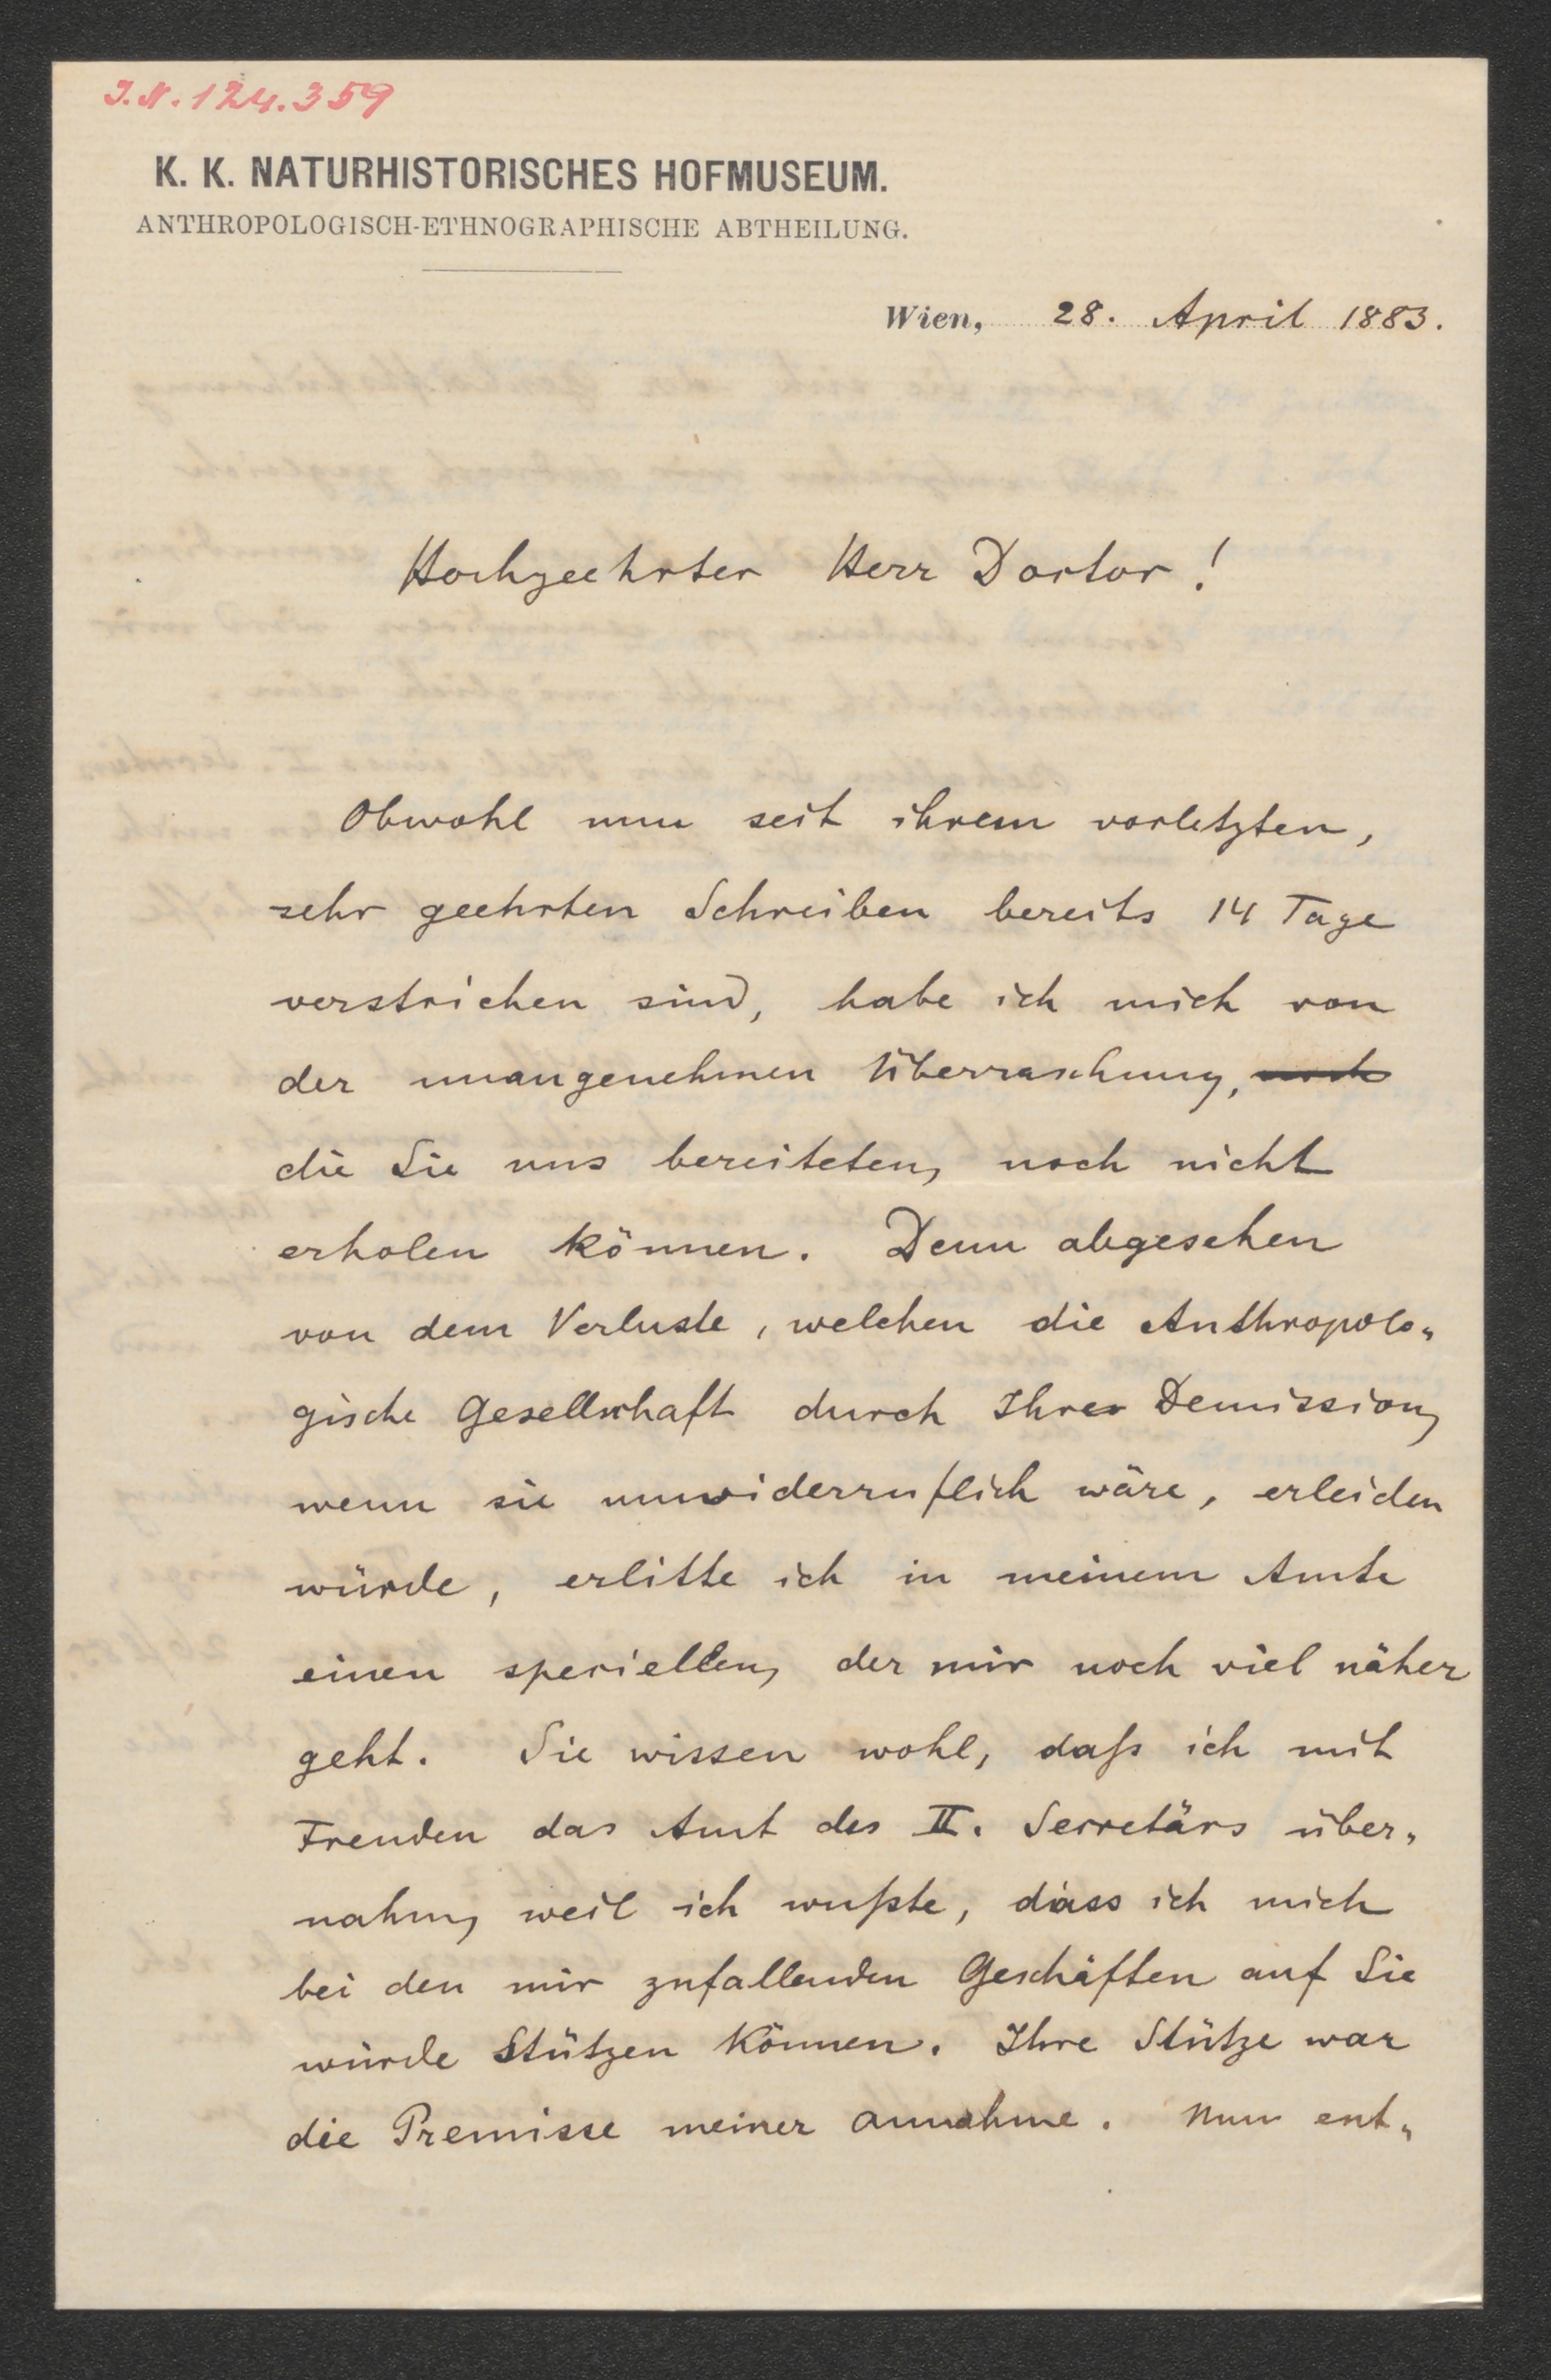 J.N. 124.359
K. K. NATURHISTORISCHES HOFMUSEUM.
ANTHROPOLOGISCH-ETHNOGRAPHISCHE ABTHEILUNG.
Wien, 28. April 1883.
Hochgeehrter Herr Doctor!
Obwohl nun seit ihrem vorletzten,
sehr geehrten Schreiben bereits 14 Tage
verstrichen sind, habe ich mich von
der unangenehmen Überraschung, noch
die Sie uns bereiteten, noch nicht
erholen können. Denn abgesehen
von dem Verluste, welchen die Anthropolo„
gische Gesellschaft durch Ihre Demission,
wenn sie unwiderruflich wäre, erleiden
würde, erlitte ich in meinem Amte
einen speciellen, der mir noch viel näher
geht. Sie wissen wohl, daſs ich mit
Freuden das Amt des II. Secretärs über„
nahm, weil ich wuſste, dass ich mich
bei den mir zufallenden Geschäften auf Sie
würde stützen können. Ihre Stütze war
die Premisse meiner Annahme. Nun ent„